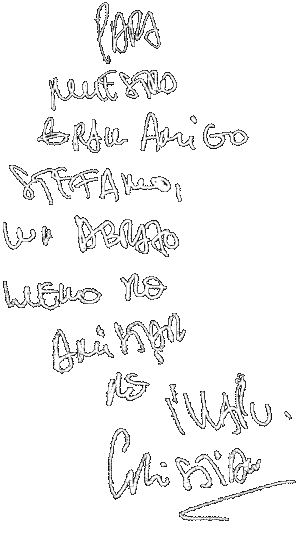 PARA
NUESTRO
GRAN AMIGO
STEFANO,
UN ABRAZO
LLENO DE
AMISTAD
DE ILLAPU.